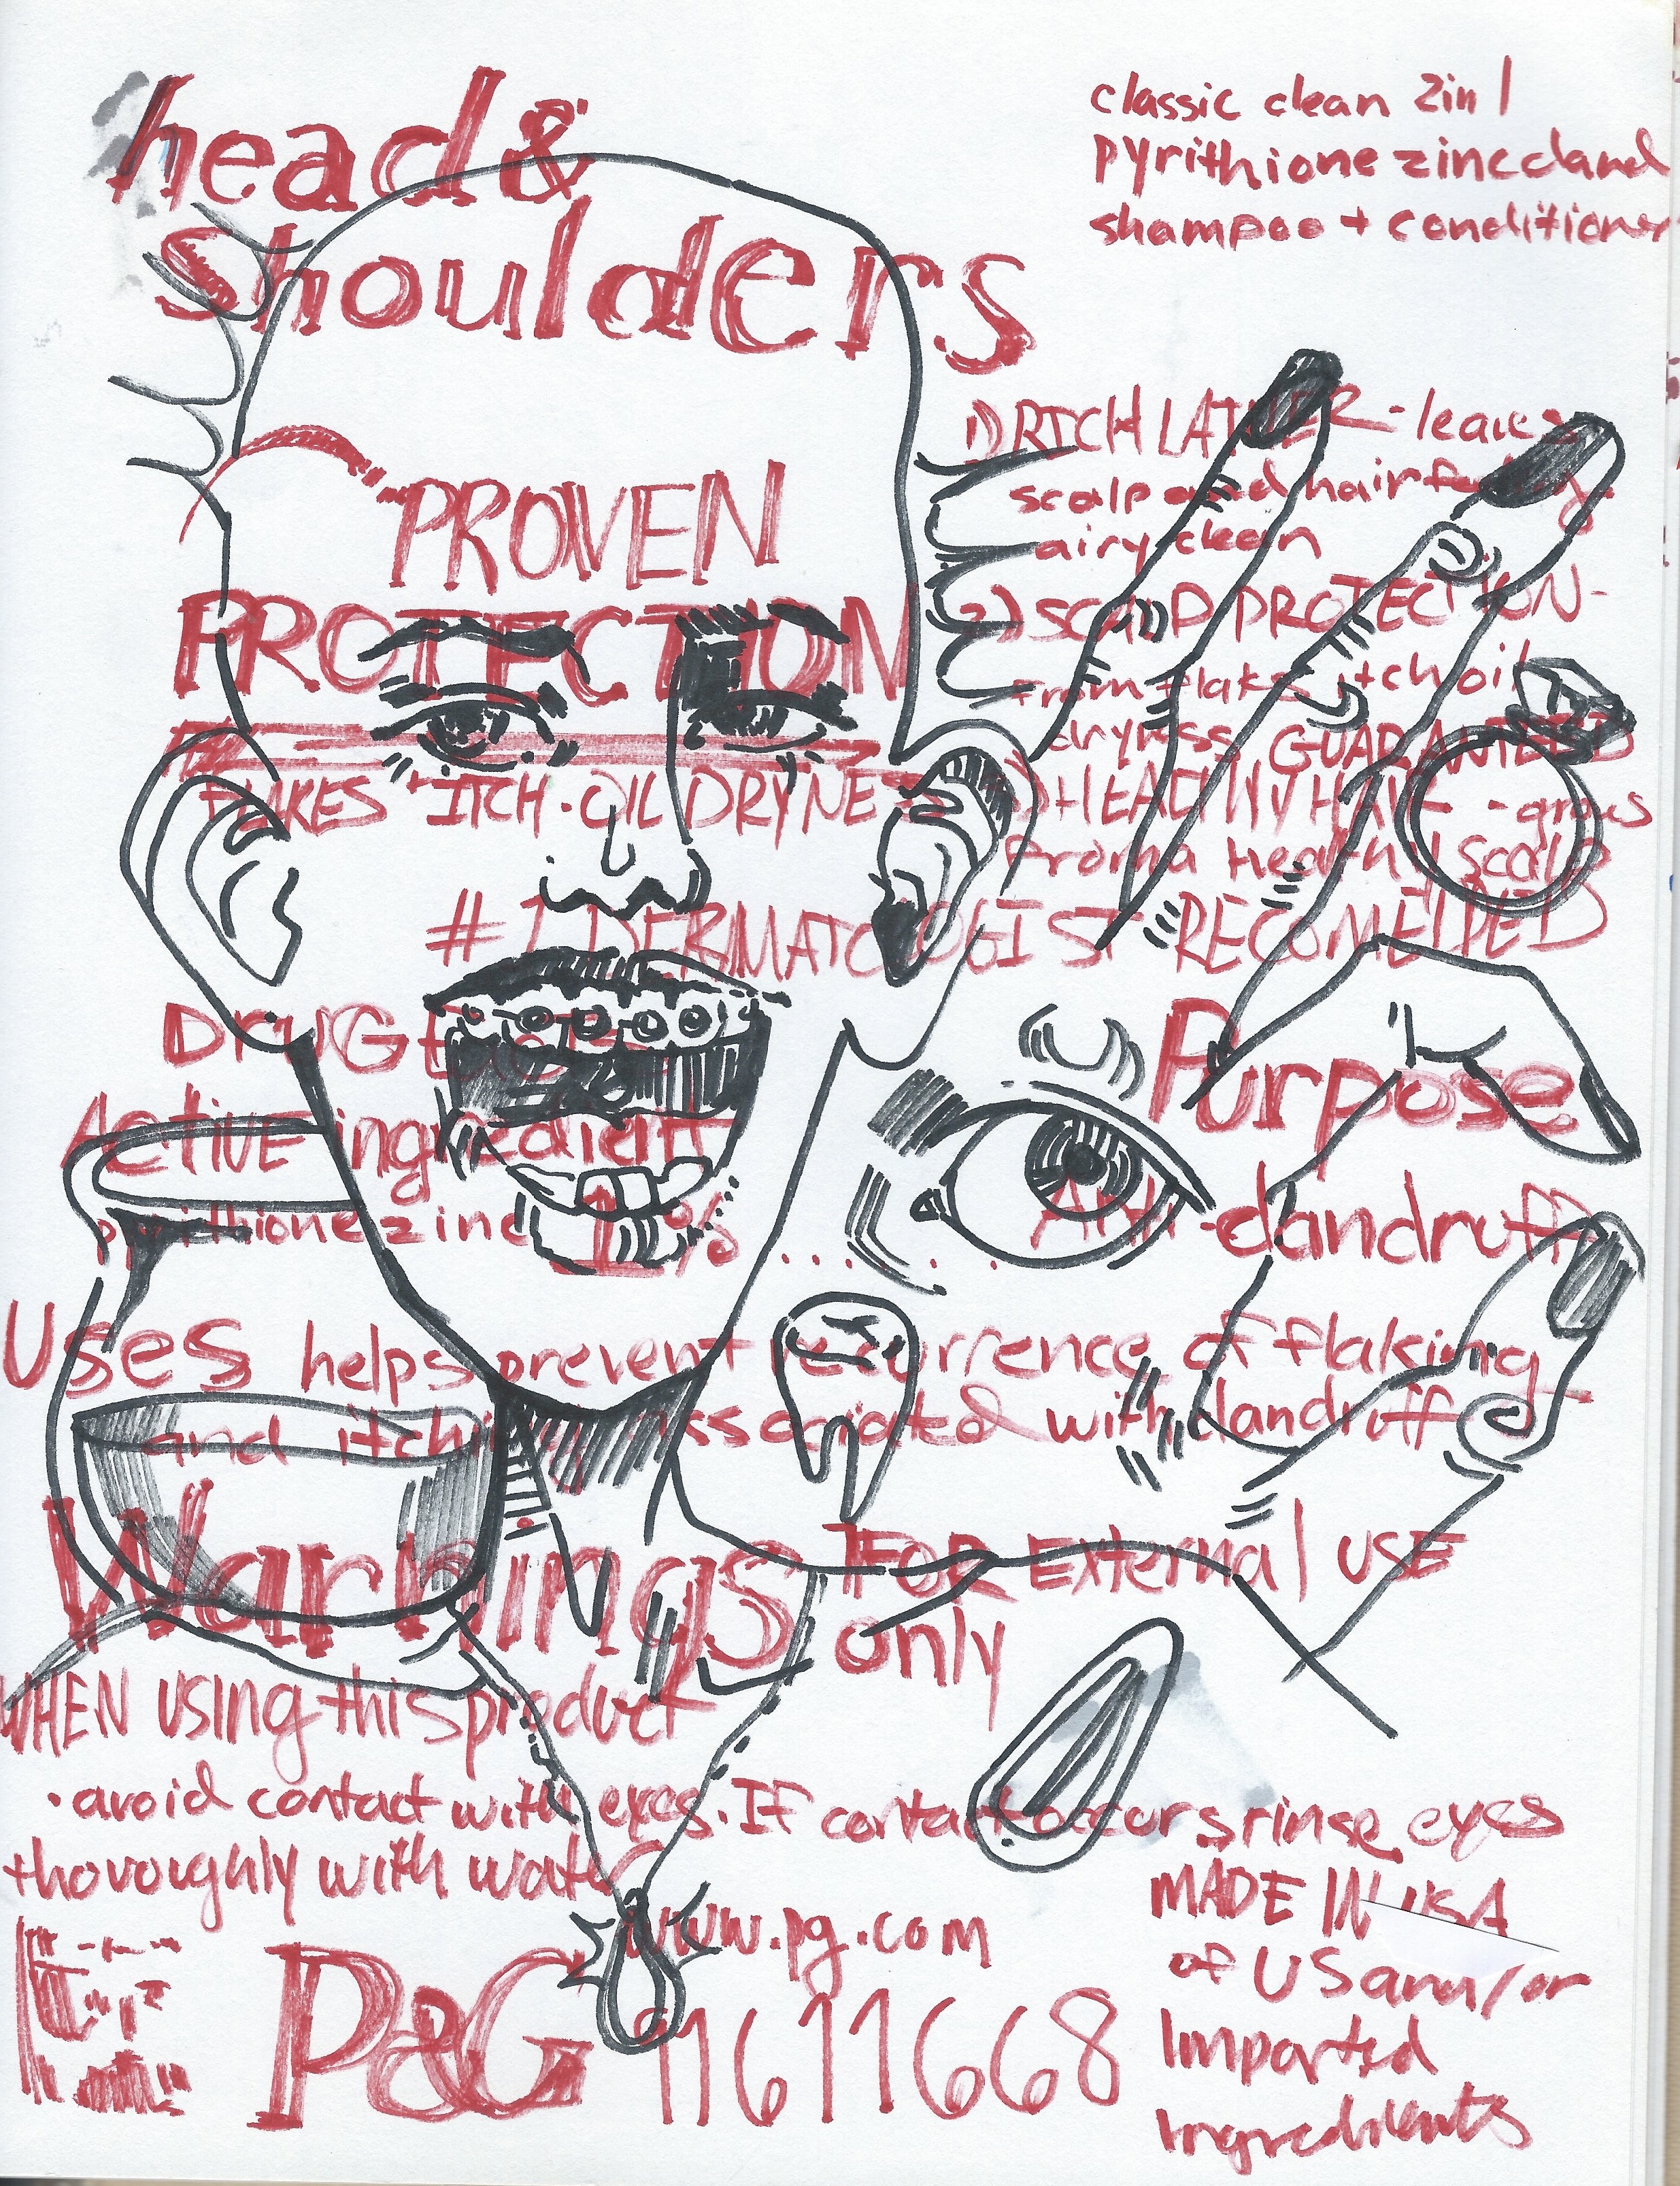 head &
shoulders
classic clean 2in1
pyrithione zinc dand
shampoo + conditioner
PROVEN
PROTECTION
FLAKES ITCH · OIL DRYNESS
#1 DERMATOLOGIST RECOMENDED
1) RICH LATHER - leaves
scalp and hair
airy clean
2) SCALP PROTECTION -
from flakes itch oil
dryness GUARANTEED
HEALTHY HAIR - grows
from a healthy scalp
Drug
Purpose
Active ingredient
Anti-dandruff
pyrithione zinc 1% .....
Uses helps prevent recurrence of flaking
and itching associated with dandruff
Warnings FOR External USE
only
WHEN using this product
· avoid contact with eyes. If contact occurs rinse eyes
thoroughly with water
www.pg.com
P&G 91611668
MADE IN USA
of US and/or
Imported
Ingredients